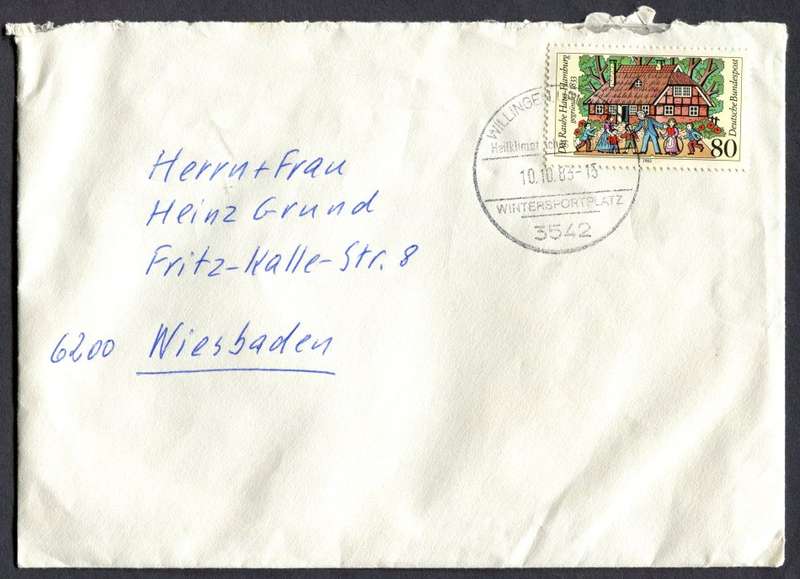 Das Rauhe Haus Hamburg
gegründet 1833
Deutsche Bundespost
80
WILLINGEN
Heilklimatischer
10.10.83-15
WINTERSPORTPLATZ
3542
Herrn + Frau
Heinz Grund
Fritz-Kalle-Str. 8
6200 Wiesbaden